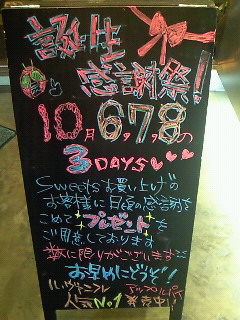 誕生
感謝祭!
10月6,7,8の
3DAYS
Sweetsお買い上げの
お客様に日頃の感謝を
こめてプレゼントを
ご用意しております
数に限りがございます
お早めにどうぞ!
人気No1 発売中!!